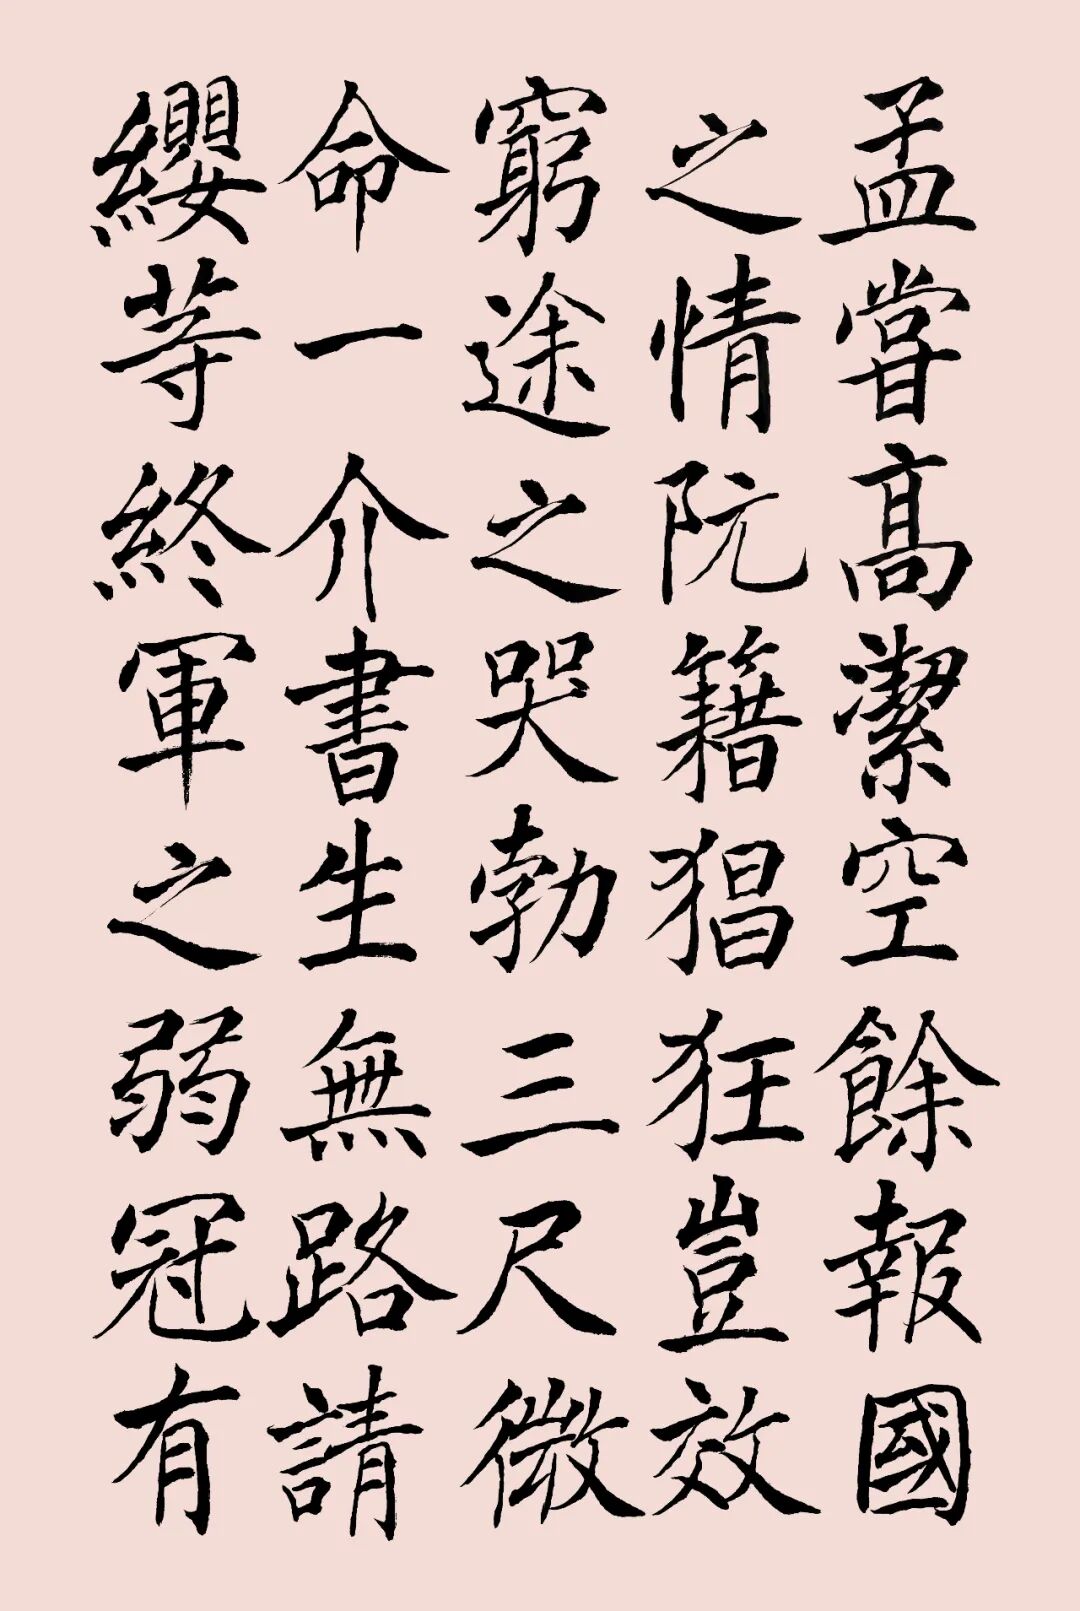 孟嘗高潔空餘報國
之情阮籍猖狂豈效
窮途之哭勃三尺微
命一介書生無路請
纓等終軍之弱冠有